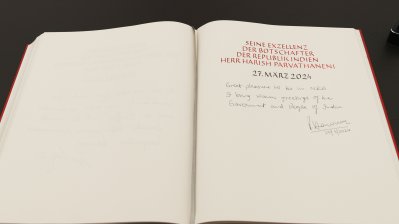 SEINE EXZELLENZ
DER BOTSCHAFTER
DER REPUBLIK INDIEN
HERR HARISH PARVATHANENI
27. MÄRZ 2024
Great pleasure to be in
I bring warm greetings of the
Government and People of India